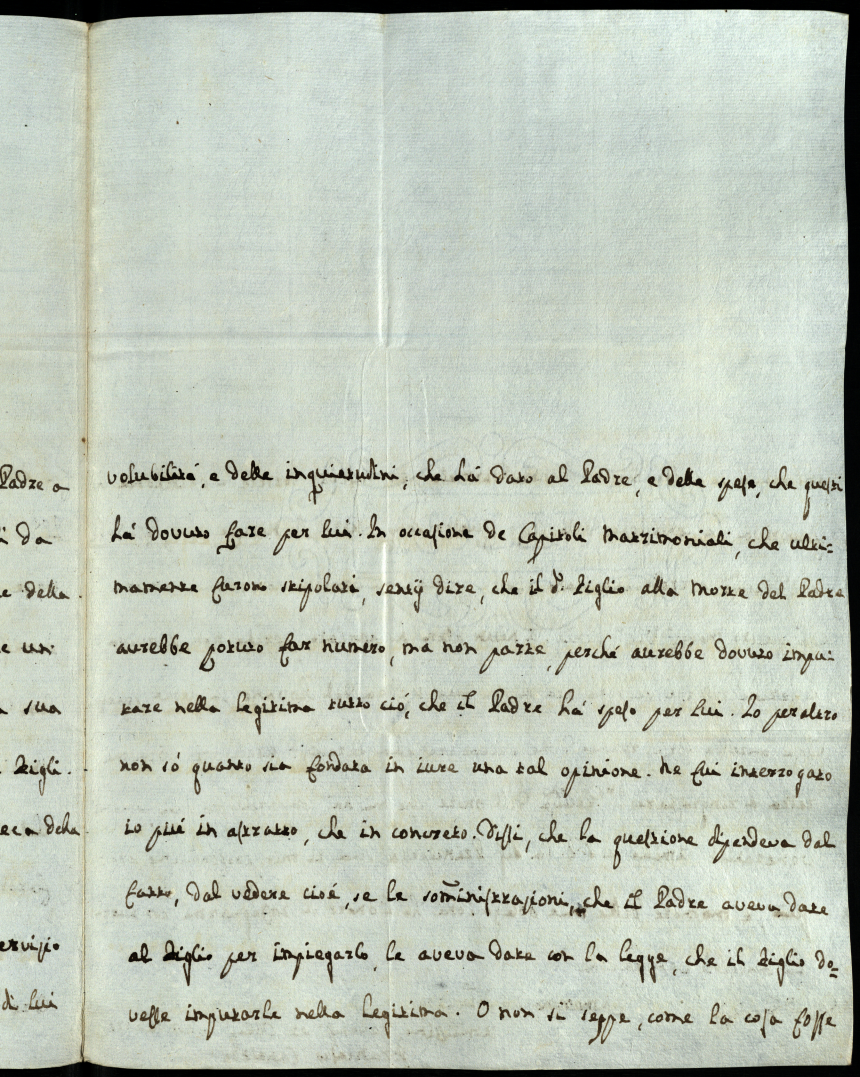 Padre a
i da
e della
e un
a sua
Figli.
eca della
ervizio
di lui
volubilità, e delle inquietudini, che hà dato al Padre, e delle spese, che questi
hà dovuto fare per lui. In occasione de Capitoli Matrimoniali, che ulti=
mamente furono stipolati, sentÿ dire, che il d.º Figlio alla morte del Padre
aurebbe potuto far numero, ma non parte, perché aurebbe dovuto impu=
tare nella legitima tutto ciò, che il Padre hà speso per lui. Io peraltro
non sò quanto sia fondata in iure una tal opinione. Ne fui interrogato
io più in astratto, che in concreto. Dissi, che la questione dipendeva dal
fatto, dal vedere cioé, se le som̃inistrazioni, che il Padre aveva date
al Figlio per impiegarlo, le aveva date con la legge, che il Figlio do=
vesse imputarle nella legitima. O non si seppe, come la cosa fosse